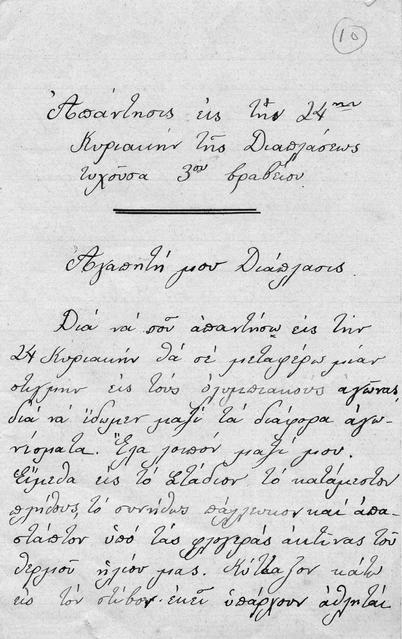 10
Ἀπάντησις εἰς τὴν 24ην
Κυριακὴν τῆς Διαπλάσεως
τυχοῦσα 3ου βραβείου.
Ἀγαπητή μου Διάπλασις.
Διὰ νὰ σοῦ ἀπαντήσω εἰς τὴν
24 Κυριακὴν θὰ σὲ μεταφέρω μίαν
στιγμὴν εἰς τοὺς ὀλυμπιακοὺς ἀγῶνας,
διὰ νὰ ἴδωμεν μαζὶ τὰ διάφορα ἀγω-
νίσματα. Ἔλα λοιπὸν μαζί μου.
Εἴμεθα εἰς τὸ Στάδιον τὸ κατάμεστον
πλήθους, τὸ συνήθως πάλλευκον καὶ ἀπα-
στάπτον ὑπὸ τὰς φλογερὰς ἀκτῖνας τοῦ
θερμοῦ ἡλίου μας. Κύτταξον κάτω
εἰς τὸν στίβον· ἐκεῖ ὑπάρχουν ἀθληταὶ